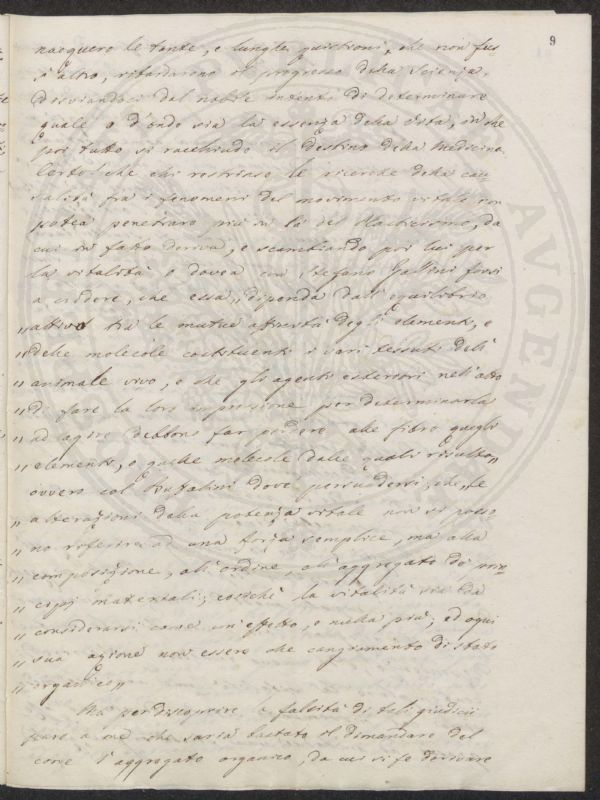 9
nacquero le tante, e lunghe quistioni, che non fus
s'altro, ritardarono il progresso della Scienza,
disviandoci dal nobile intento di determinare
quale e d'onde sia la essenza della vita, in che
poi tutto si racchiude il destino della Medicina.
Certo che chi restrinse le ricerche della cau
salità fra i fenomeni del movimento vitale non
potea penetrare più in là del
cui in fatto deriva, e scambiando poi lui per
la vitalità o dovea con Stefano Gallini farsi
a credere, che essa „ dipenda dall'equilibrio
„ attivo tra le mutue affinità degli elementi, e
„ delle molecole costituenti i vari tessuti dell'
„ animale vivo, e che gli agenti esteriori nell'atto
„ di fare la loro impressione per determinarla
„ ad agire debbono far perdere alle fibre quegli
„ elementi, o quelle molecole dalle quali risulta „
ovvero col Bufalini dove persuadersi, che „ le
„ alterazioni della potenza vitale non si posso
„ no riferire ad una forza semplice, ma alla
„ composizione, all'ordine, all'aggregato de' prin
„ cipj materiali; cosichè la vitalità sia da
„ considerarsi come un effetto, e nulla più, ed ogni
„ sua azione non essere che cangiamento di stato
„ organico „
Ma per discoprire la falsità di tali giudicii
pare a me che saria bastato il dimandare del
come l'aggregato organico, da cui si fe derivare